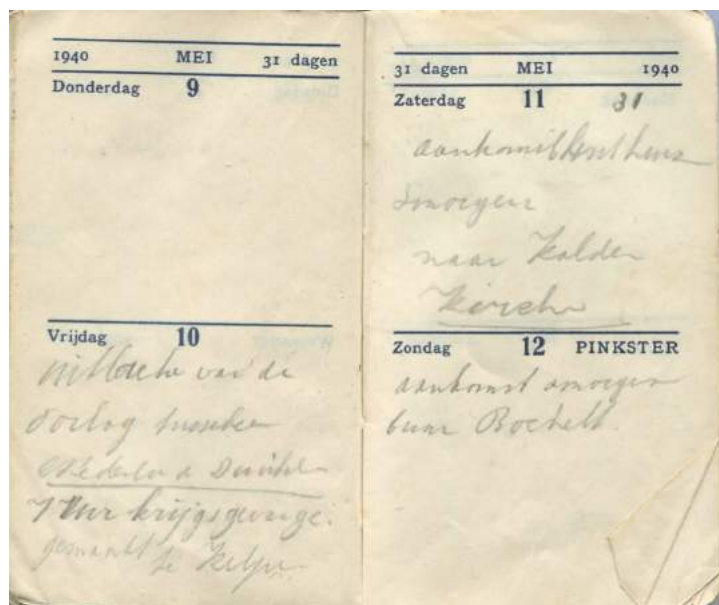 1940 MEI 31 dagen
Donderdag 9
Vrijdag 10
van de
oorlog tusschen
7 uur krijgsgevange
gemaakt te
31 dagen MEI 1940
Zaterdag 11 31
aankomst
smorgens
naar Kalden
Kirche
Zondag 12 PINKSTER
aankomst smorgens
6 uur Bocholt